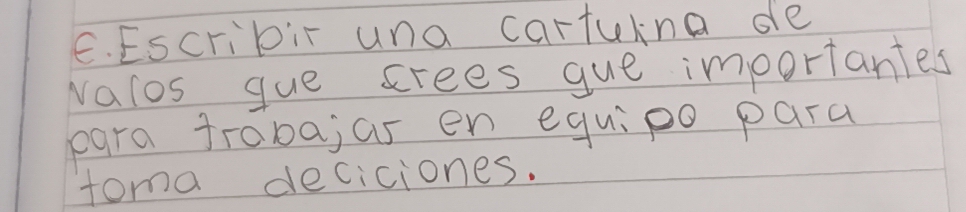 E. Escribir una cartulina de
valos que crees que importantes
para trabajar en equipo para
toma deciciones.